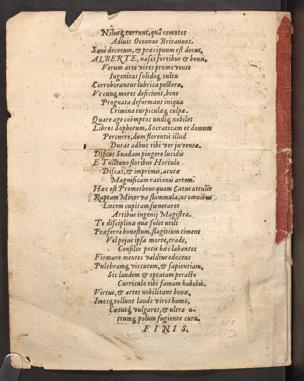 Nilusq́; currunt, qua remotos
Adluit Oceanus Britannos.
Sanè decorum, & præcipuum est decus,
ALBERTE, nasci fortibus & bonis,
Verum arte vires promouente
Ingenitas solidoq́; cultu
Corroborantur lubrica pectora,
Vt cunq; mores deficiunt, bene
Prognata deformant iniqua
Crimina turpiculaq́; culpæ.
Quare age coëmptos undiq; nobiles
Libros Sophorum, Socraticam et domum
Percurre, dum florentis illud
Durat adhuc tibi ver iuuentæ.
Discas Suadam pingere lucidis
E Tulliano floribus Hortulo
Discas, & imprimis, acutæ
Magnificam rationis artem.
Hac est Prometheus quam Catus attulit
Raptam Mineruæ flammula, ut omnibus
Lucem capitum funeraret
Artibus ingenij Magistra.
Te disciplina quæ solet utili
Præferre honestum, flagitium timens
Vel peius ipsa morte, trade,
Consilio potis hæc labantes
Firmare mentes validius docens
Pulchramq́; virtutem, & sapientiam,
Sic laudem & optatam peracto
Curriculo tibi famam habebis.
Virtus, & artes nobilitant bonæ,
Imosq́; tollunt laude viros humo,
Cœtusq́; vulgares, & ultra u-
trumq; polum fugiente cura.
FINIS.